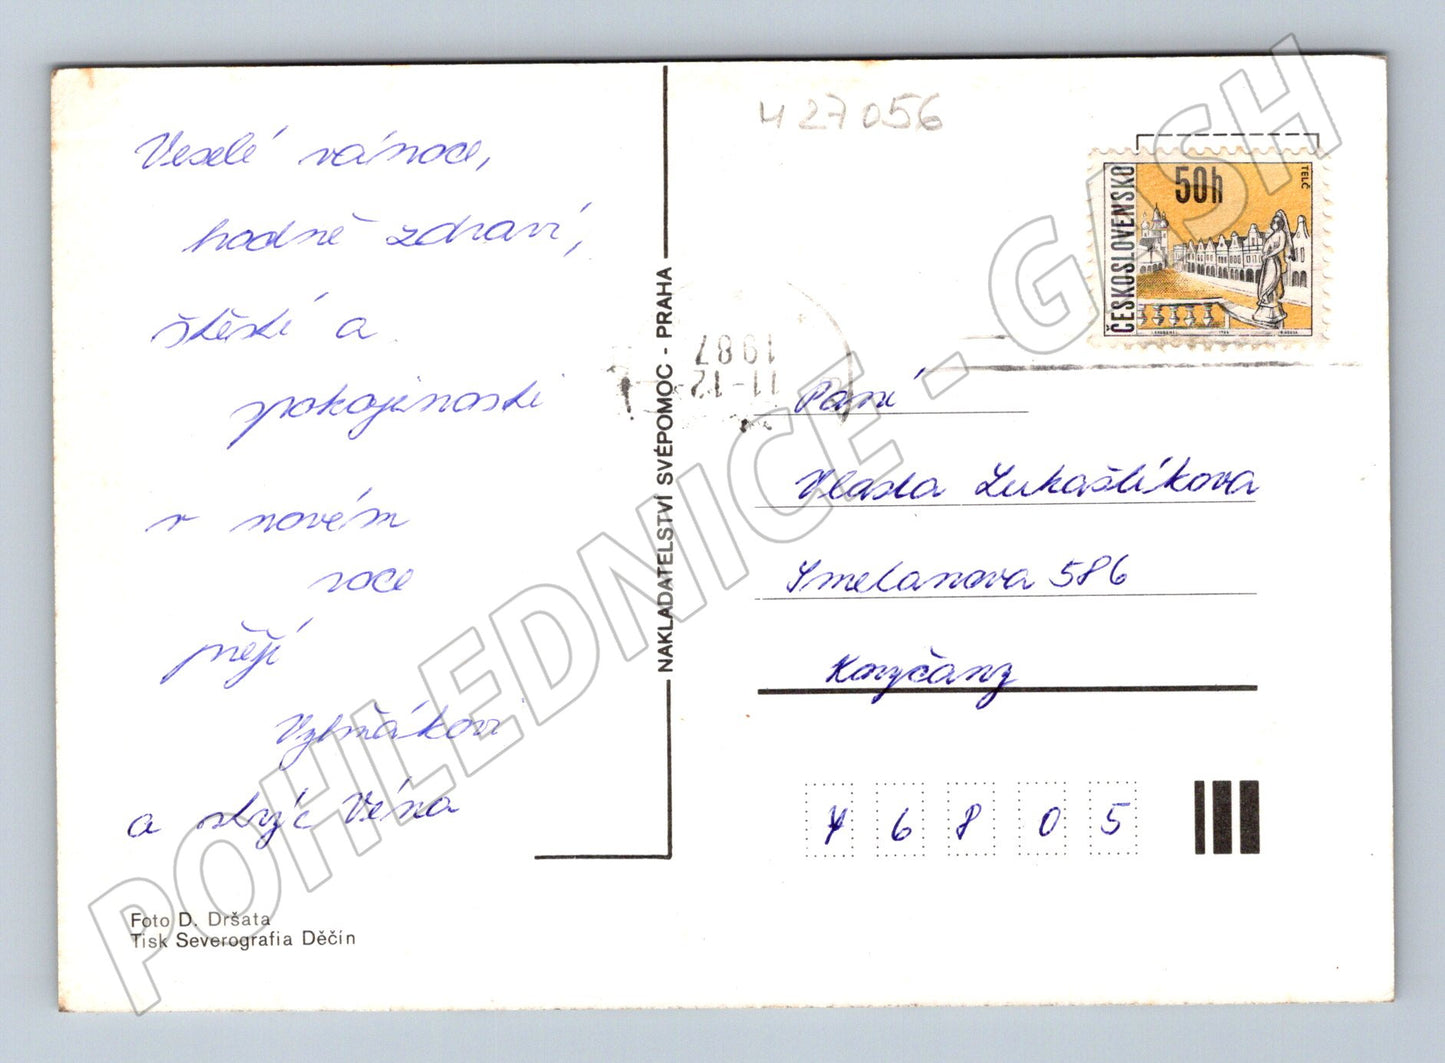 Veselé vánoce,
hodně zdraví,
štěstí a
spokojenosti
v novém
roce
přejí
a strýc Véna
Foto D. Dršata
Tisk Severografia Děčín
NAKLADATELSTVÍ SVÉPOMOC - PRAHA
427056
ČESKOSLOVENSKO
50h
TELČ
11-12
1987
Paní
Vlasta Lukaštíková
Smetanova 586
Koryčany
46805
POHLEDNICE - GASH